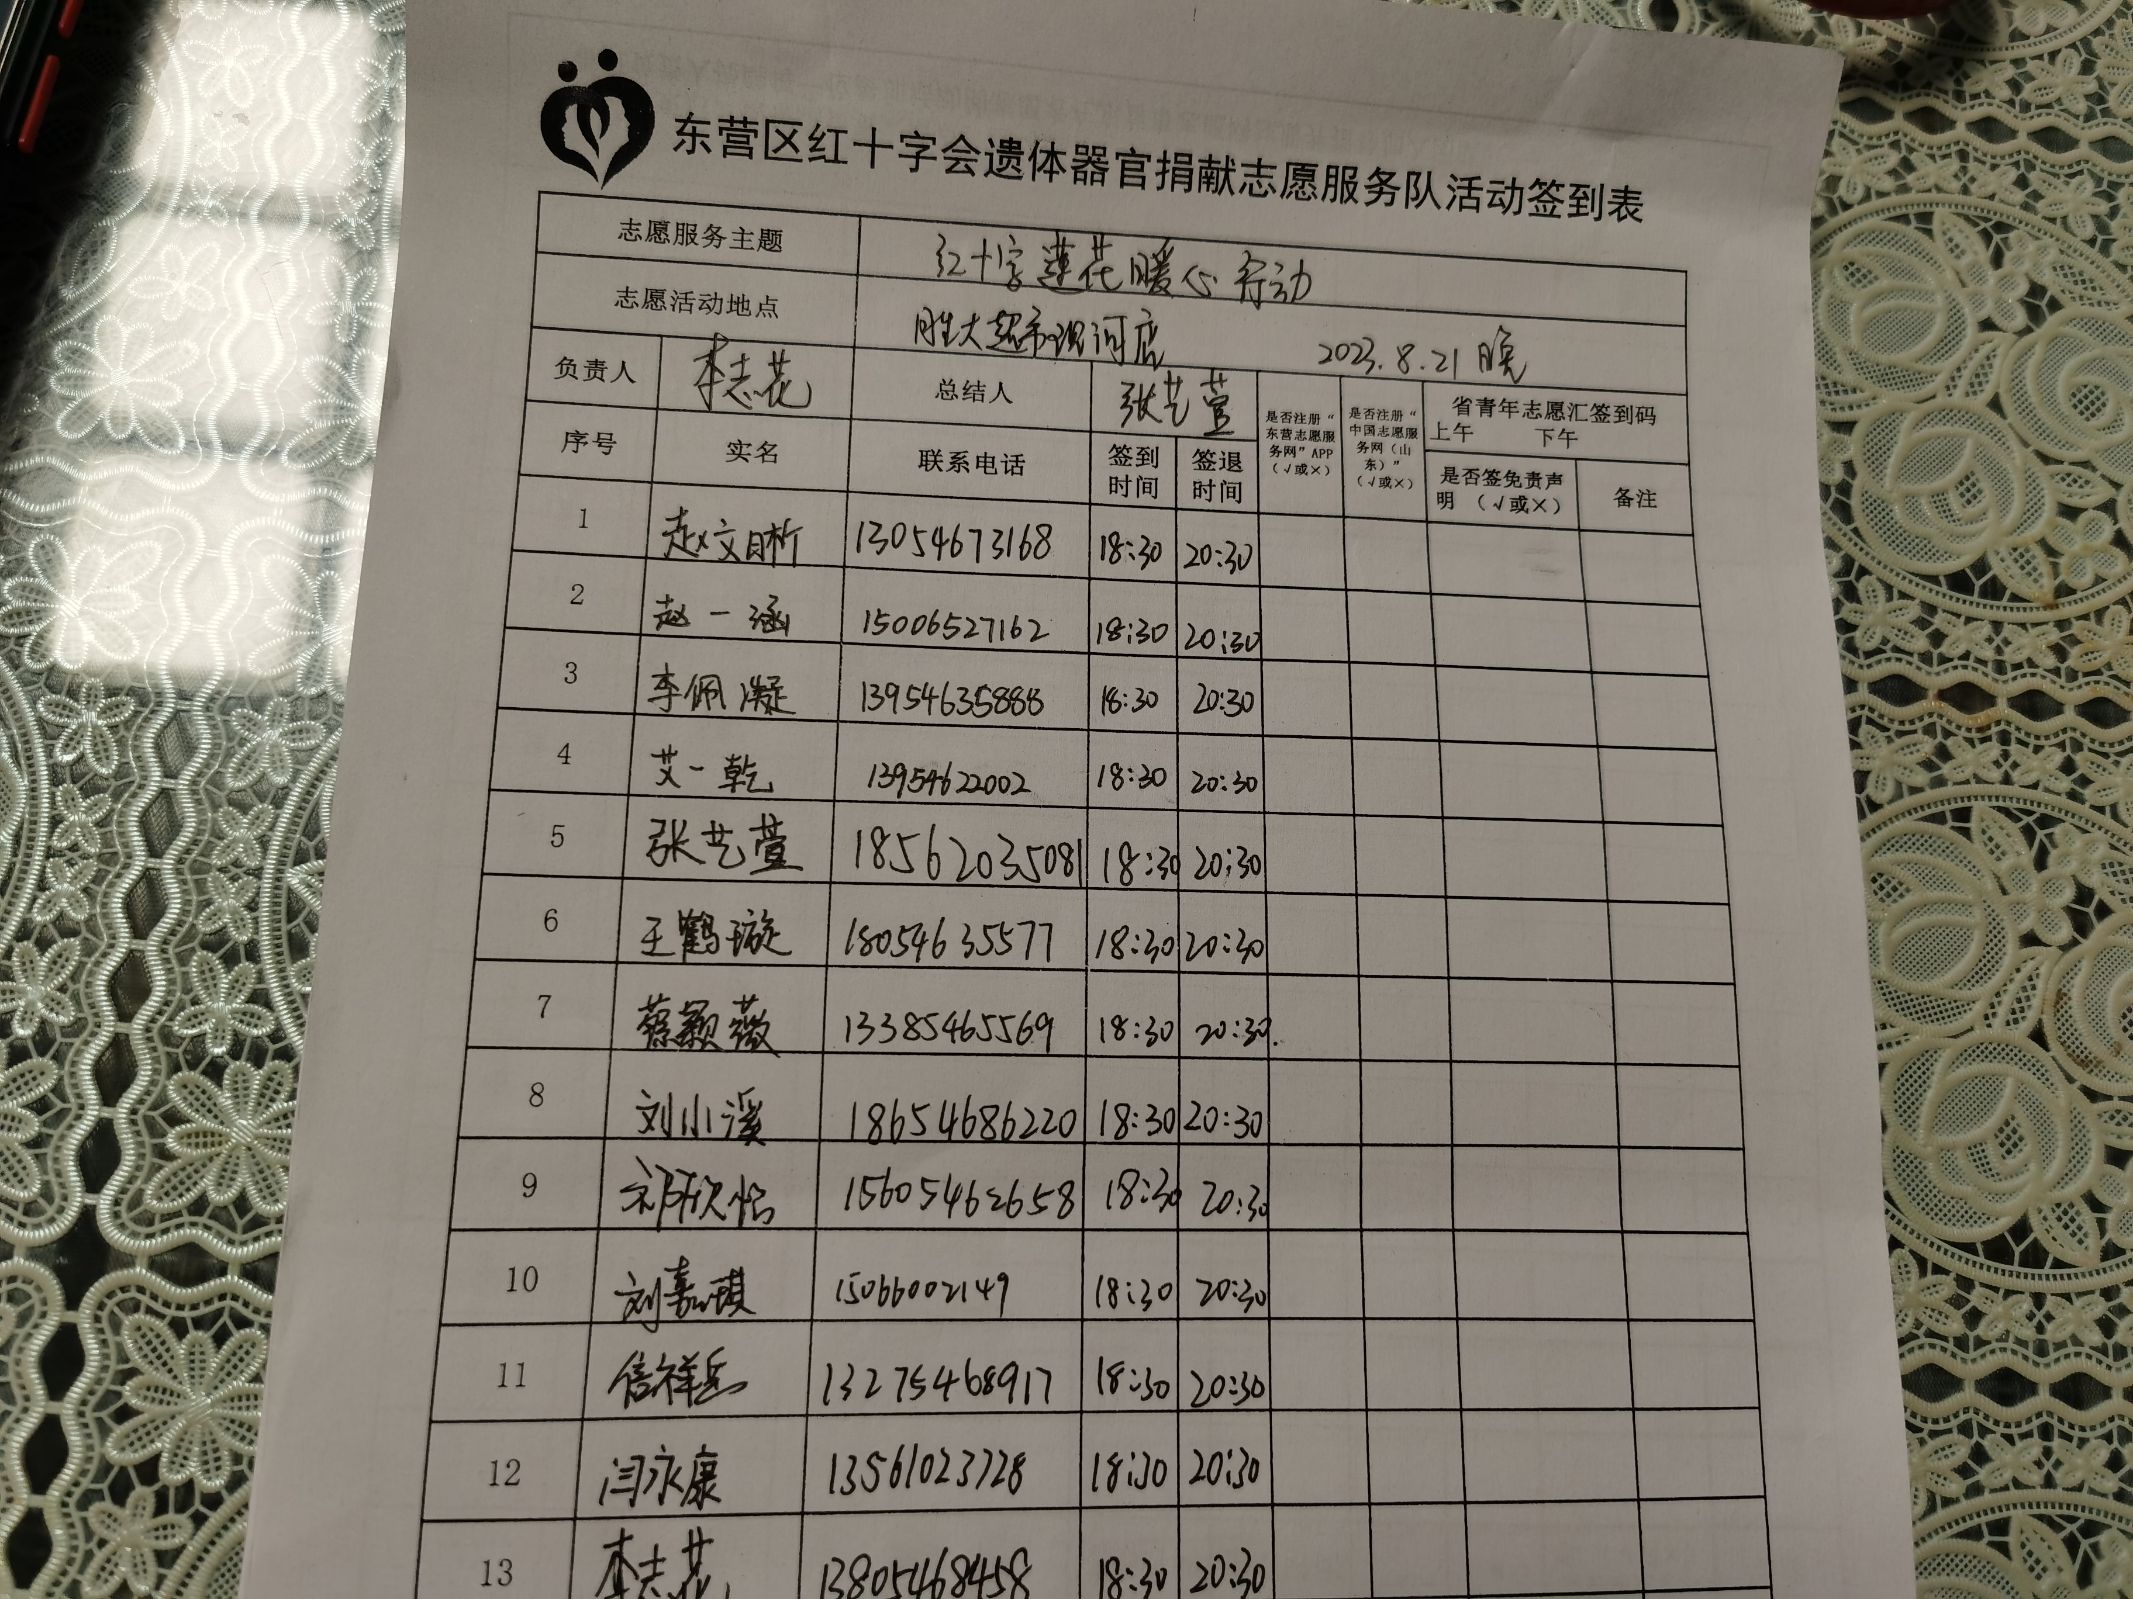 东营区红十字会遗体器官捐献志愿服务队活动签到表
志愿服务主题 红十字莲花暖心行动
志愿活动地点 胜大超市现河店 2023.8.21 晚
负责人 李志花 总结人 张艺萱 是否注册“东营志愿服务网”APP（√或×） 是否注册“中国志愿服务网（山东）”（√或×） 省青年志愿汇签到码 上午 下午
序号 实名 联系电话 签到时间 签退时间 是否签免责声明（√或×） 备注
1 赵文晰 13054673168 18:30 20:30
2 赵一涵 15006527162 18:30 20:30
3 李佩凝 13954635888 18:30 20:30
4 艾一乾 13954622002 18:30 20:30
5 张艺萱 18562035081 18:30 20:30
6 王鹤璇 18054635577 18:30 20:30
7 蔡颖薇 13385465569 18:30 20:30.
8 刘小溪 18654686220 18:30 20:30
9 祁欣怡 15605462658 18:30 20:30
10 刘嘉琪 15066002149 18:30 20:30
11 信祥岳 13275468917 18:30 20:30
12 闫永康 13561023728 18:30 20:30
13 李志花 13805468458 18:30 20:30